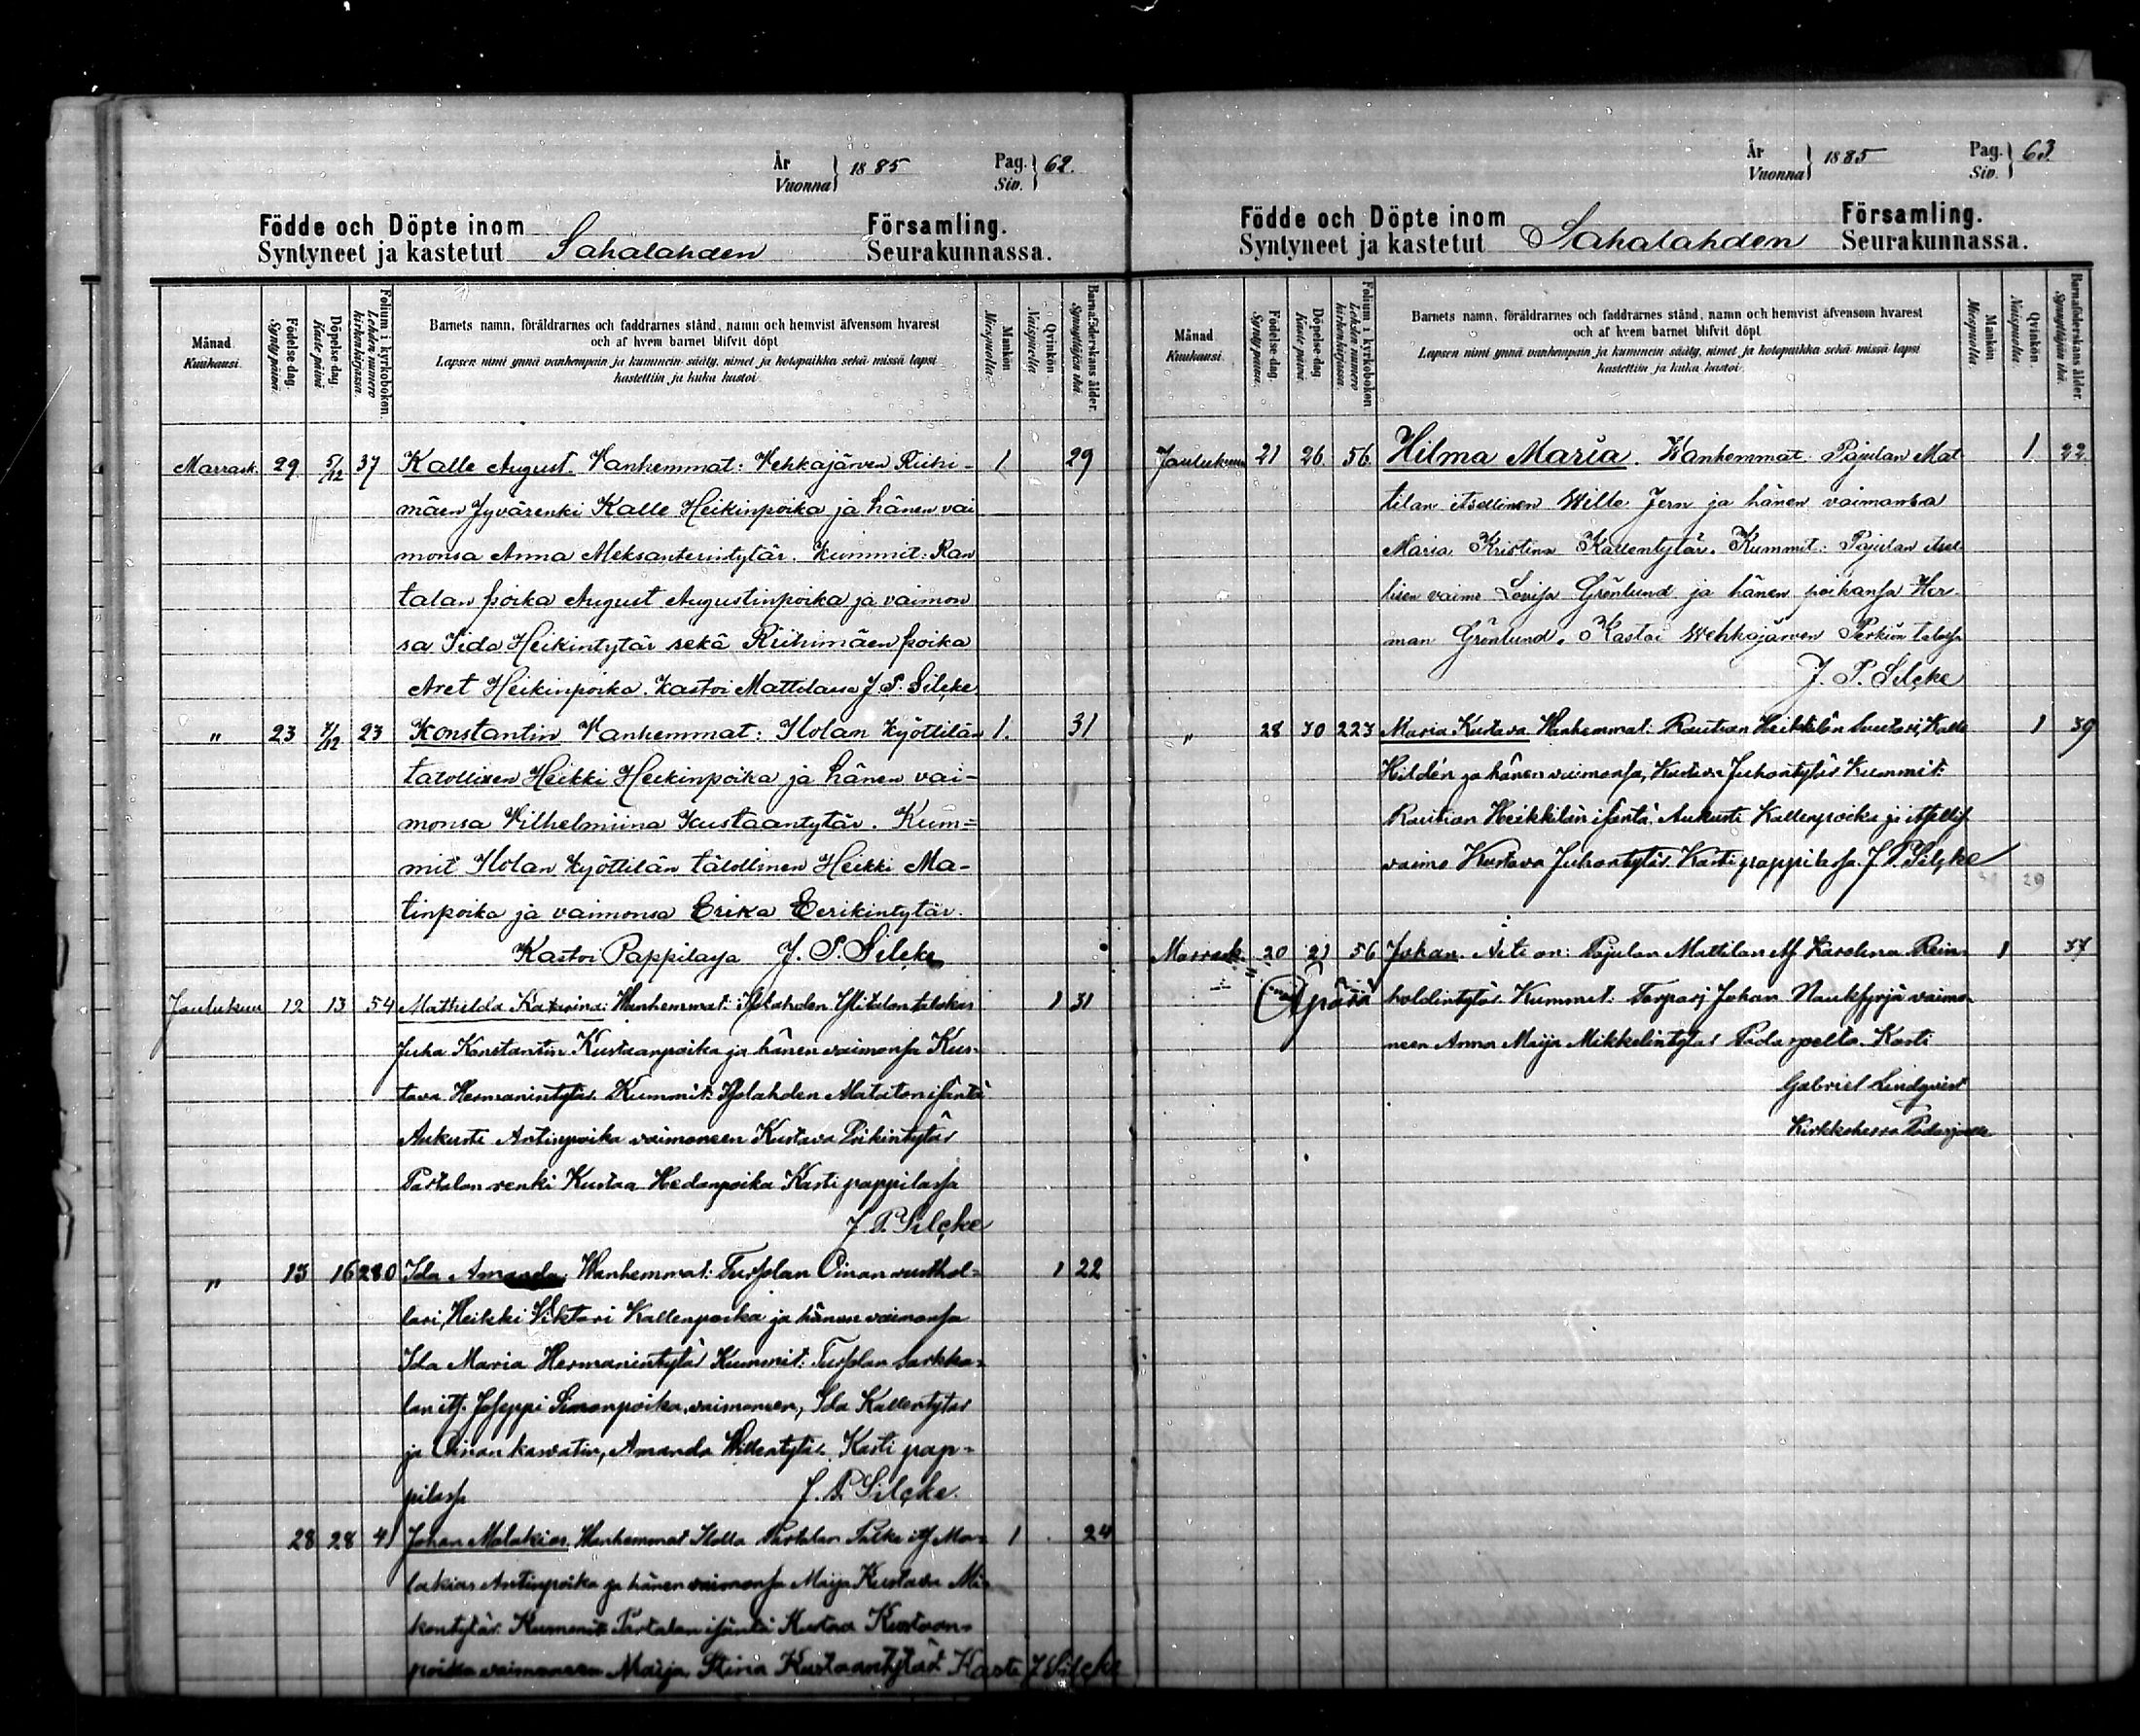 År
Vuonna } 1885
Pag.
Siv. } 62.
Födde och Döpte inom Församling.
Syntyneet ja kastetut Sahalahden Seurakunnassa.
Månad Kuukausi.
Födelse-dag. Syntypäivä.
Döpelse-dag Kaste päivä
Folium i kyrkoboken. Lehden numero kirkonkirjassa.
Barnets namn, föräldrarnes och faddrarnes stånd, namn och hemvist äfvensom hvarest
och af hvem barnet blifvit döpt
Lapsen nimi ynnä vanhempain ja kummein sääty, nimet ja kotopaikka sekä missä lapsi
kastettiin ja kuka kastoi.
Mankön Miespuolta.
Qvinkön Naispuolta.
Barnaföderskans ålder. Synnyttäjän ikä.
Marrask. 29 5/12 37 Kalle August. Vanhemmat: Vehkajärven Riihi- 1 29
mäen Jyvärenki Kalle Heikinpoika ja hänen vai
monsa Anna Aleksanterintytär. Kummit: Ran
talan poika August Augustinpoika ja vaimon
sa Iida Heikintytär sekä Riihimäen poika
Aret Heikinpoika. Kastoi Mattilassa J. P. Silcke
" 23 7/12 23 Konstantin Vanhemmat: Ilolan Kyöttilän 1. 31
talollinen Heikki Heikinpoika ja hänen vai-
monsa Vilhelmiina Kustaantytär. Kum=
mit Ilolan Kyöttilän talollinen Heikki Ma-
tinpoika ja vaimonsa Erika Eerikintytär.
Kastoi Pappilassa J. P. Silcke
Joulukuu 12 13 54 Mathilda Katarina: Wanhemmat: 1 31
Juha Konstantin Kustaanpoika ja hänen vaimonsa Kus-
tava Hermanintytär Kummit: isäntä
Aukusti Antinpoika vaimoneen Kustava
renki Kustaa Kasti pappilassa
J. P. Silcke
" 13 16 280 Ida Amanda. Wanhemmat: Oinan rusthol=
1 22
lari, Heikki Viktori Kallenpoika ja hänen vaimonsa
Ida Maria Hermanintytär Kummit:
lan its. Joseppi Simonpoika, vaimoneen, Ida Kallentytär
ja Oinan Amanda Kasti pap=
pilassa J. P. Silcke.
28 28 41 Johan Malakias Wanhemmat 1 24
lakias Antinpoika ja hänen vaimonsa Maija Kustava Mi-
kontytär. Kummit isäntä Kustaa Kustaan-
poika vaimoneen Maija Stina Kustaantytär Kasti J Silcke
År
Vuonna } 1885
Pag.
Siv. } 63
Födde och Döpte inom Församling.
Syntyneet ja kastetut Sahalahden Seurakunnassa.
Månad Kuukausi.
Födelse-dag. Syntypäivä.
Döpelse-dag Kaste päivä.
Folium i kyrkoboken Lehden numero kirkonkirjassa.
Barnets namn, föräldrarnes och faddrarnes stånd, namn och hemvist äfvensom hvarest
och af hvem barnet blifvit döpt
Lapsen nimi ynnä vanhempain ja kummein sääty, nimet ja kotopaikka sekä missä lapsi
kastettiin ja kuka kastoi.
Mankön Miespuolta.
Qvinkön Naispuolta.
Barnaföderskans ålder. Synnyttäjän ikä.
Joulukuu 21 26 56 Hilma Maria. Wanhemmat: Pajulan Mat 1 22
tilan itsellinen Wille Jern ja hänen vaimonsa
Maria Kristina Kallentytär. Kummit: Pajulan itsel
lisen vaimo Lovisa Grönlund ja hänen poikansa Her
man Grönlund. Kastoi Wehkajärven Perkiön talossa
J. P. Silcke
" 28 30 223 Maria Kustava Wanhemmat: Raution Heikkilän Kalle 1 39
Hildén ja hänen vaimonsa, Kustava Juhontytär Kummit:
Raution Heikkilän isäntä Aukusti Kallenpoika ja
vaimo Kustava Juhontytär. Kasti pappilassa. J. P. Silcke
29
Marrask. 20 21 56 Johan. Äiti on: Pajulan Mattilan its. Karolina Rein= 1 37
Äpärä holdintytär. Kummit: Johan vaimo-
neen Anna Maija Mikkelintytär Kasti
Gabriel Lindqvist
Kirkkoherra